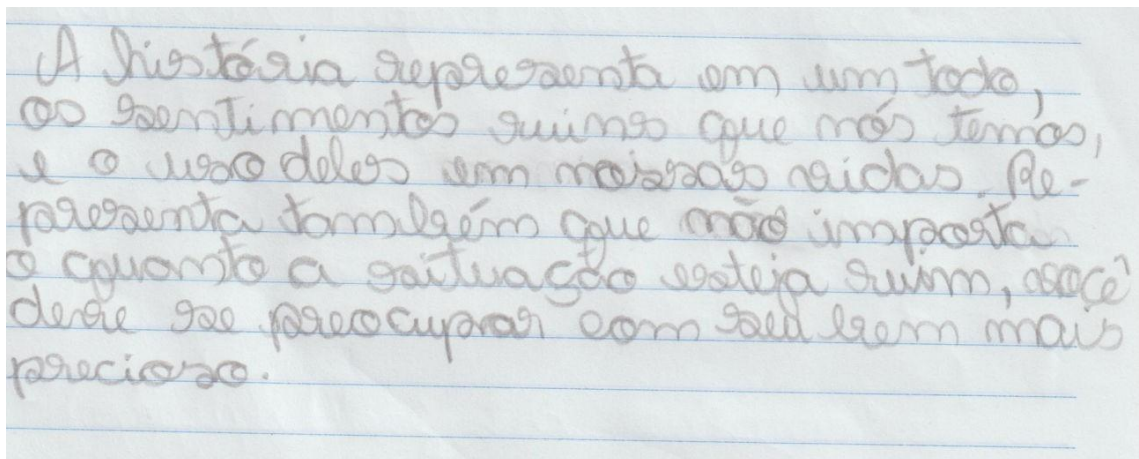 A história representa em um todo,
os sentimentos ruins que nós temos,
e o uso deles em nossas vidas. Re-
presenta também que não importa
o quanto a situação esteja ruim, você
deve se preocupar com seu bem mais
precioso.